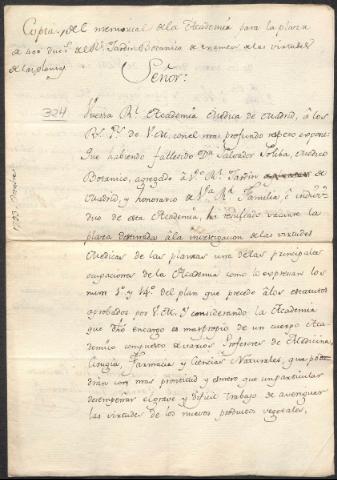 Copia del memorial de la Academia para la plaza
de 400 duc.s del R.l Jardin Botanico de examen de las virtudes
de las plantas
Señor:
324
Vuestra R.l Academia Medica de Madrid, á los
R.s P.s de V. M. con el mas profundo respeto expone:
Que habiendo fallecido D.n Salvador Soliba, Medico
Botanico, agregado á V.ro R.l Jardin de
Madrid, y honorario de V.ra R.l Familia, é indivi-
duo de esta Academia, ha resultado vacante la
plaza destinada á la investigacion de las virtudes
Medicas de las plantas una de las principales
ocupaciones de la Academia como lo expresan los
num. 1.º y 14.º del plan que precede á los estatutos
aprobados por V. M. Y considerando la Academia
que dho encargo es mas propio de un cuerpo Aca-
demico compuesto de varios Profesores de Medicina,
Cirugia, Farmacia y Ciencias Naturales, que po-
drán con mas prontitud y esmero que un particular
desempeñar el grave y dificil trabajo de averiguar
las virtudes de los nuevos productos vegetales,